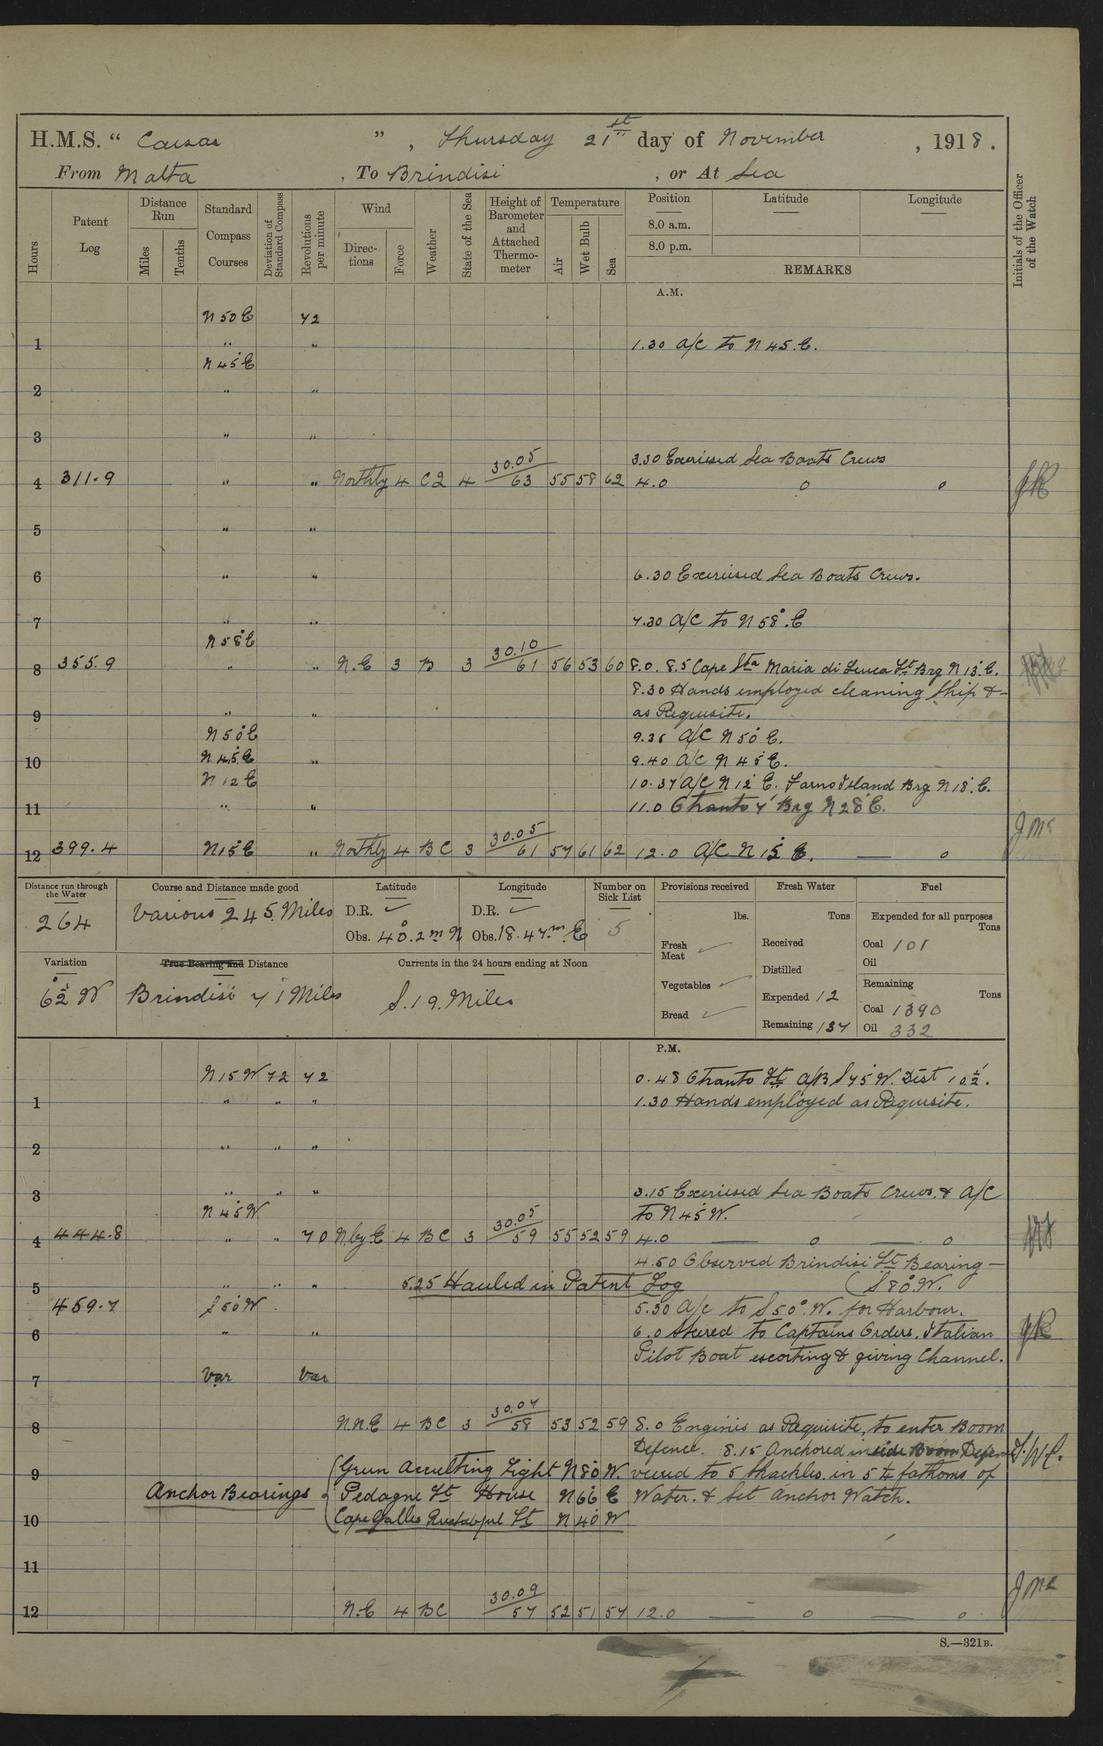 H.M.S. "Caesar", Thursday 21st day of November, 1918.
From Malta, To Brindisi, or At Sea
Hours
Patent Log
Distance Run
Miles
Tenths
Standard Compass Courses
Deviation of Standard Compass
Revolutions per minute
Wind
Directions
Force
Weather
State of the Sea
Height of Barometer and Attached Thermometer
Temperature
Air
Wet Bulb
Sea
Position
Latitude
Longitude
8.0 a.m.
8.0 p.m.
REMARKS
Initials of the Officer of the Watch
A.M.
N 50 E 72
1 " " 1.30 A/C to N 45° E.
N 45° E
2 " "
3 " "
3.30 Exercised Sea Boats Crews
4 311.9 " " Northly 4 C2 4 30.05/63 55 58 62 4.0
5 " "
6 " " 6.30 Exercised Sea Boats Crews.
7 " " 7.30 A/C to N 58° E
N 58° E
8 355.9 " " N.E 3 B 3 30.10/61 56 53 60 8.0. 8.5 Cape Sta Maria di Leuca Lt Brg N 13° E.
8.30 Hands employed cleaning Ship &
9 " " as Requisite.
N 50° E 9.35 A/C N 50° E.
10 N 45° E " 9.40 A/C N 45° E.
N 12 E 10.37 A/C N 12° E. Island Brg N 18° E.
11 " " 11.0 Otranto Brg N 28° E.
12 399.4 N 15° E " Northly 4 BC 3 30.05/61 57 61 62 12.0 A/C N 15° E.
Distance run through the Water
264
Course and Distance made good
Various 245 Miles
Latitude
D.R.
Obs. 40°.2m N
Longitude
D.R.
Obs. 18.47m E
Number on Sick List
5
Variation
6½° W
True Bearing and Distance
Brindisi 71 Miles
Currents in the 24 hours ending at Noon
S. 19. Miles
Provisions received
lbs.
Fresh Meat
Vegetables
Bread
Fresh Water
Tons
Received
Distilled
Expended 12
Remaining 137
Fuel
Expended for all purposes
Tons
Coal 101
Oil
Remaining
Tons
Coal 1390
Oil 332
P.M.
N 15 W 72 72 0.48 Otranto Lt A/B S 75° W. Dist 10½'.
1 " " " 1.30 Hands employed as Requisite.
2 " " "
3 " " " 3.15 Exercised Sea Boats Crews. & A/C
N 45° W to N 45° W.
4 444.8 " " 70 N by E 4 BC 3 30.05/59 55 52 59 4.0
4.50 Observed Brindisi Lt Bearing
5 " " " 5.25 Hauled in Patent Log (S 80° W.
459.7 S 50° W 5.30 A/c to S 50° W. for Harbour.
6 " " 6.0 Steered to Captains Orders. Italian
Pilot Boat escorting & giving Channel.
7 Var Var
8 N.N.E 4 BC 3 30.07/58 53 52 59 8.0 Engines as Requisite, to enter Boom
Defence. 8.15 Anchored inside Boom Defence
9 Green Occulting Light N 80° W. veered to 5 shackles. in 5¼ fathoms of
Anchor Bearings Pedagne Lt House N 66° E Water. & Set Anchor Watch.
10 Cape Gallo Lt N 40° W
11
12 N.E 4 BC 30.09/57 52 51 57 12.0
S.—321B.